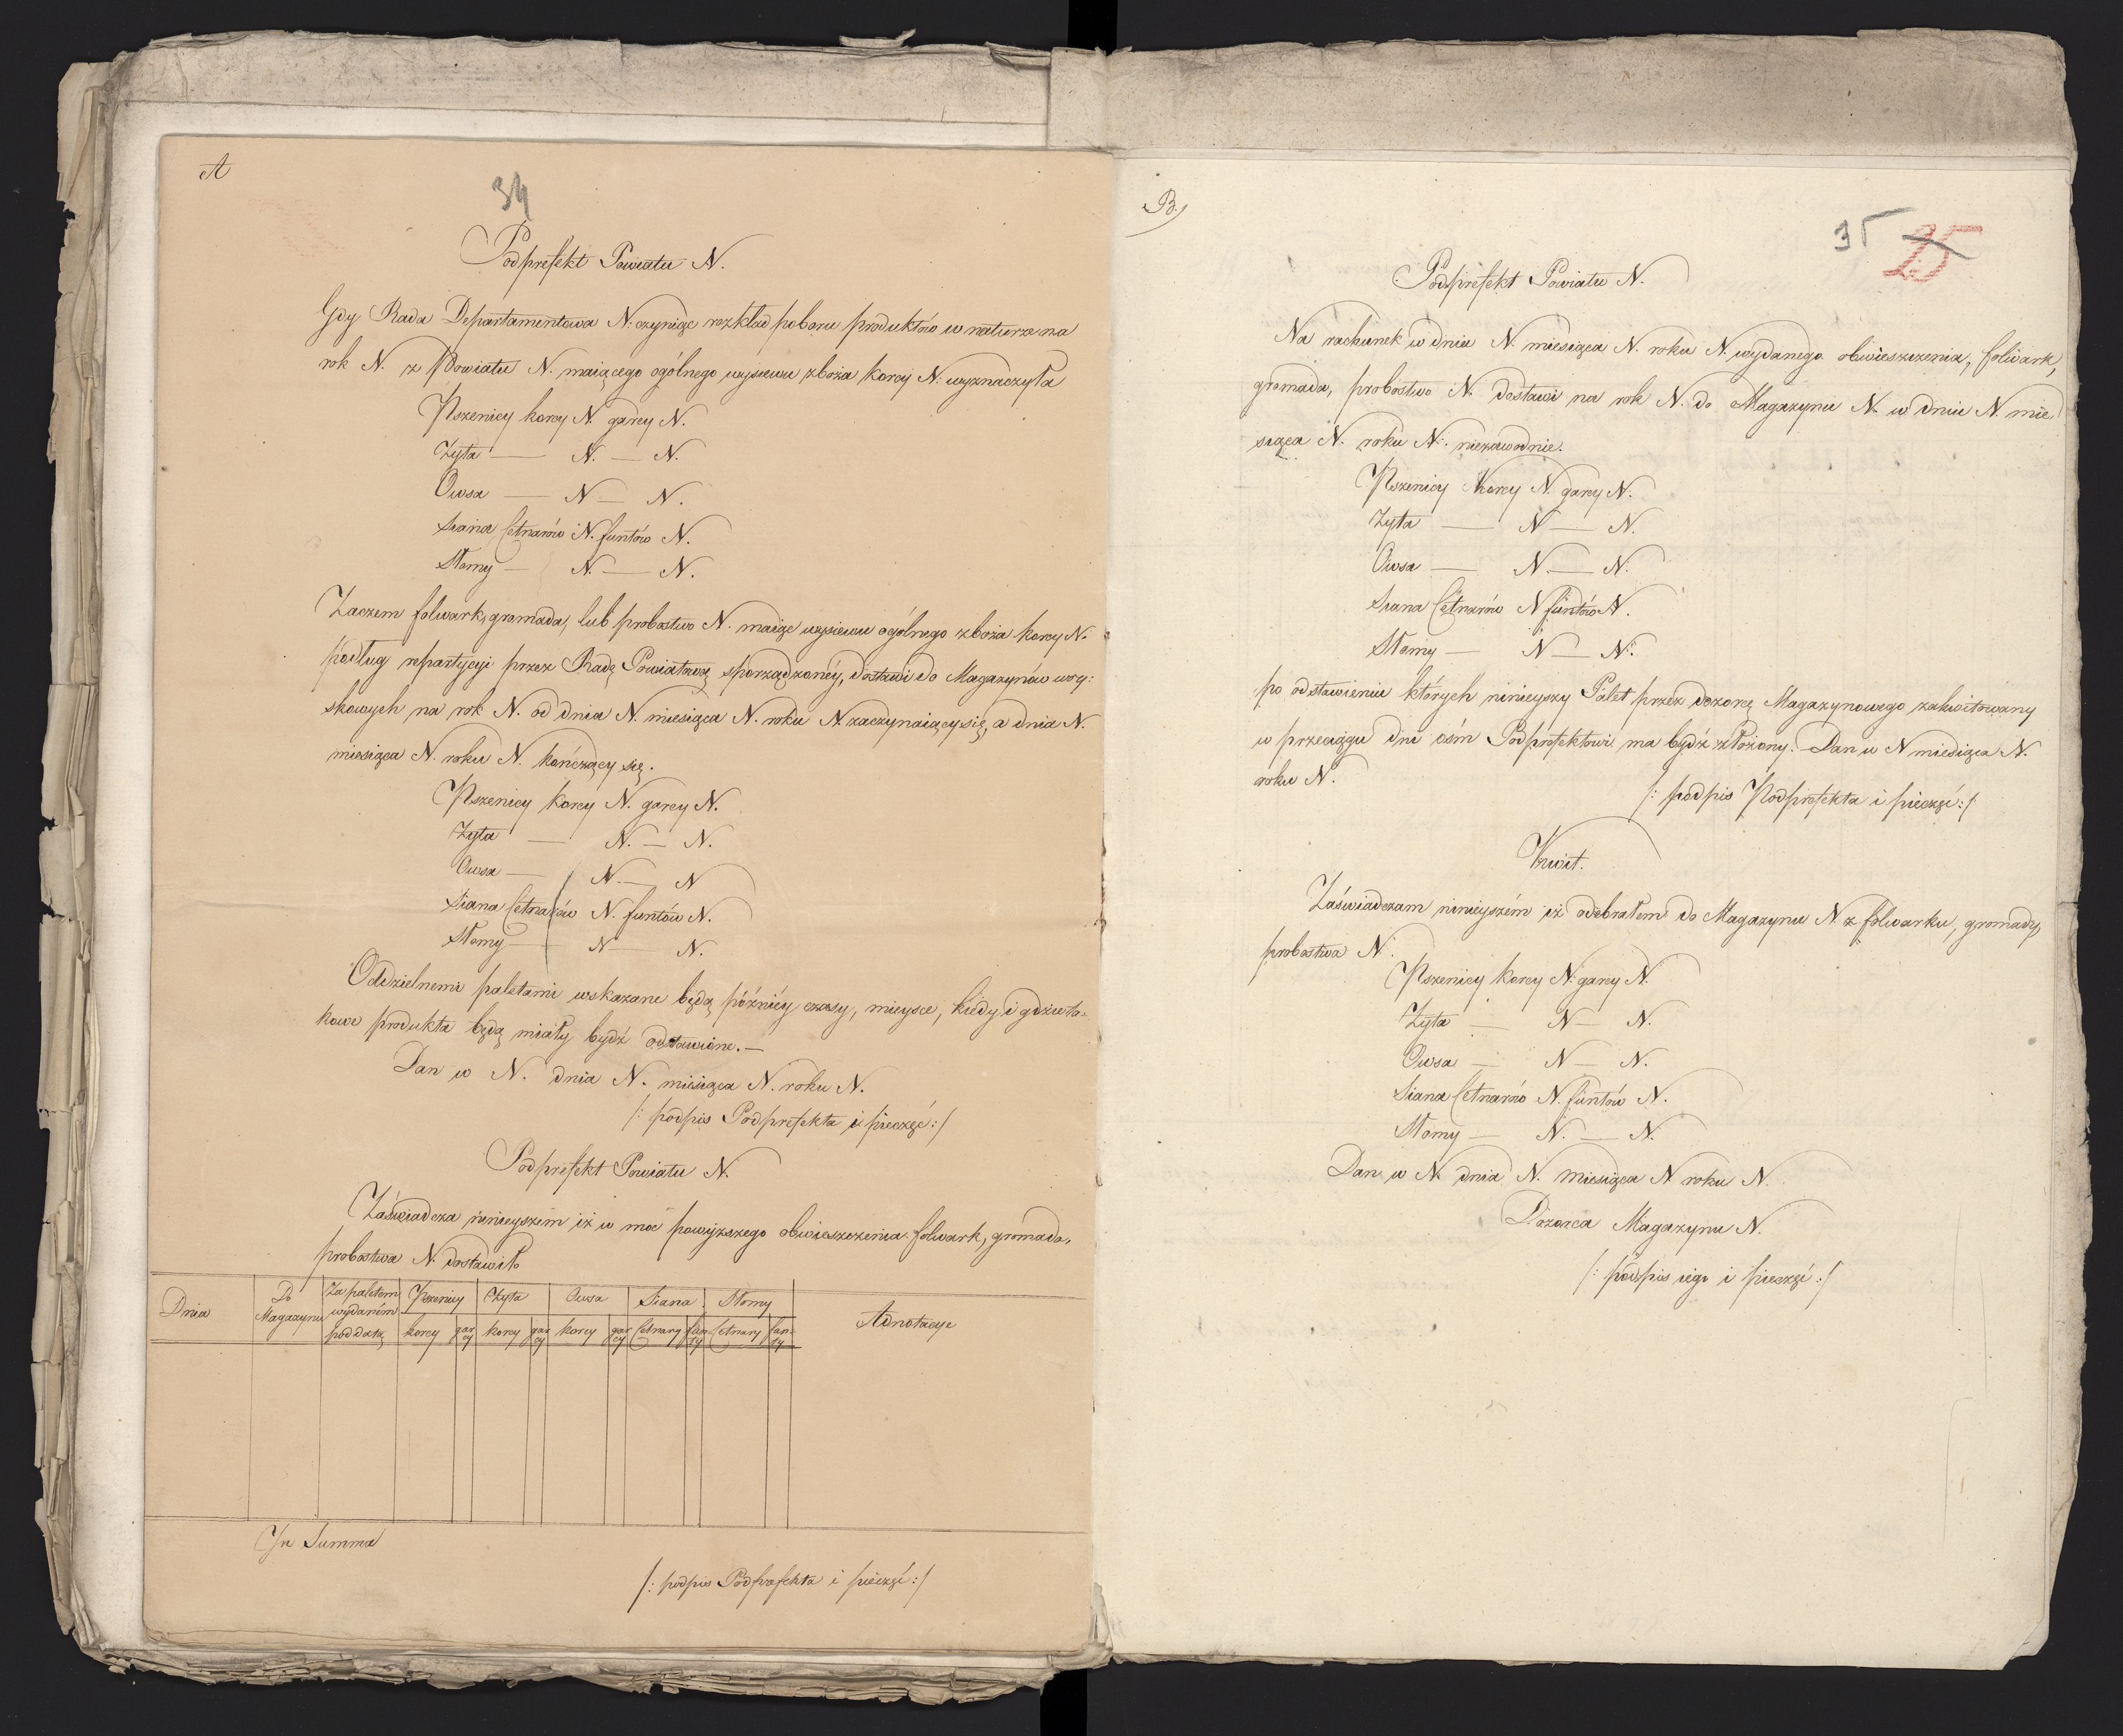 A
34
Podprefekt Powiatu N.
Gdy Rada Departamentowa N. czyniąc rozkład poboru produktów w naturze na
rok N. z Powiatu N. maiącego ogólnego wysiewu zboża korcy N: wyznaczyła
Pszenicy korcy N. garcy N.
Żyta — N. — N.
Owsa — N — N.
Siana Cetnarów N. funtów N.
Słomy — N. — N.
Zaczem folwark, gromada, lub probostwo N. maiąc wysiewu ogólnego zboża korcy N.
podług repartycyi przez Radę Powiatową sporządzoney, dostawi do Magazynów woy:
skowych na rok N. od dnia N. miesiąca N. roku N. zaczynaiący się, a dnia N.
miesiąca N. roku N. kończący się.
Pszenicy korcy N. garcy N.
Żyta — N. — N.
Owsa — N. — N
Siana Cetnarów N. funtów N.
Słomy — N — N.
Oddzielnemi paletami wskazane będą późniéy czasy, mieysce, kiedy i gdzie ta-
kowe produkta będą miały bydź odstawione. —
Dan w N. dnia N. miesiąca N. roku N.
/: podpis Podprefekta i pieczęć :/
Podprefekt Powiatu N.
Zaświadcza ninieyszem iż w moc powyższego obwieszczenia folwark, gromada,
probostwa N. dostawiło
Dnia
Do Magazynu
Za paletem wydaném pod datą
Pszenicy
Żyta
Owsa
Siana
Słomy
Adnotacye
korcy garcy korcy garcy korcy garcy Cetnary funty Cetnary funty
In Summa
/: podpis Podprefekta i pieczęć :/
B.)
35 25
Podprefekt Powiatu N.
Na rachunek w dniu N. miesiąca N. roku N. wydanego obwieszczenia, folwark,
gromada, probostwo N. dostawi na rok N. do Magazynu N. w dniu N. mie
siąca N. roku N. niezawodnie.
Pszenicy korcy N. garcy N.
Żyta — N — N.
Owsa — N. — N.
Siana Cetnarów N funtów N.
Słomy — N — N.
po odstawieniu których ninieyszy Palet przez dozorcę Magazynowego zakwitowany
w przeciągu dni ośm Podprefektowi ma bydź złożony. Dan w N miesiąca N.
roku N.
/: podpis Podprefekta i pieczęć :/
Kwit.
Zaświadczam ninieyszém iż odebrałem do Magazynu N z folwarku, gromady,
probostwa N.
Pszenicy korcy N. garcy N.
Żyta — N — N.
Owsa — N — N.
Siana Cetnarów N. funtów N.
Słomy — N. — N.
Dan w N. dnia N. miesiąca N roku N.
Dozorca Magazynu N.
/: podpis iego i pieczęć :/